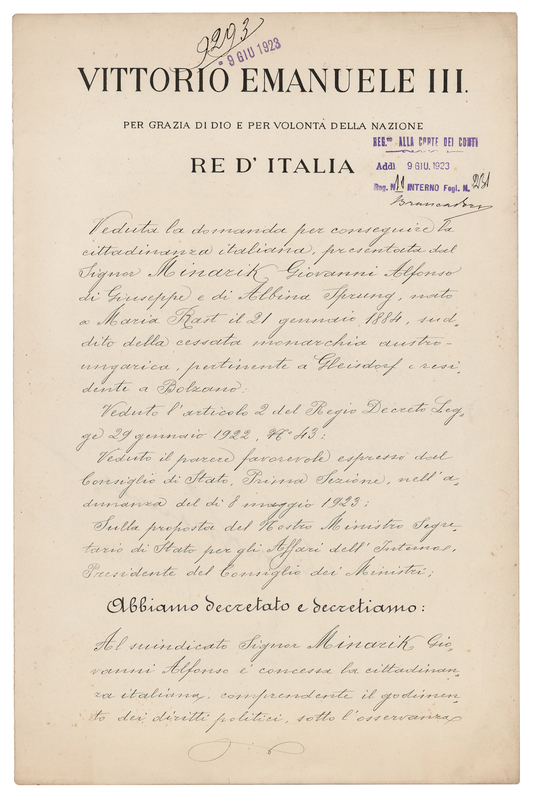 9293
9 GIU 1923
VITTORIO EMANUELE III.
PER GRAZIA DI DIO E PER VOLONTÀ DELLA NAZIONE
REG.to ALLA CORTE DEI CONTI
Addì 9 GIU. 1923
RE D' ITALIA
Reg. N. 11 INTERNO Fogl. N.
Veduta la domanda per conseguire la
cittadinanza italiana, presentata dal
Signor Minarik Giovanni Alfonso
di Giuseppe e di Albina Sprung, nato
a Maria Rast il 21 gennaio 1884, sud-
dito della cessata monarchia austro-
ungarica, pertinente a Gleisdorf e resi-
dente a Bolzano;
Veduto l'articolo 2 del Regio Decreto Leg-
ge 29 gennaio 1922, N° 43;
Veduto il parere favorevole espresso dal
Consiglio di Stato, Prima Sezione, nell'a-
dunanza del dì 8 maggio 1923;
Sulla proposta del Nostro Ministro Segre-
tario di Stato per gli Affari dell'Interno,
Presidente del Consiglio dei Ministri;
Abbiamo decretato e decretiamo:
Al suindicato Signor Minarik Gio-
vanni Alfonso è concessa la cittadinan-
za italiana, comprendente il godimen-
to dei diritti politici, sotto l'osservanza